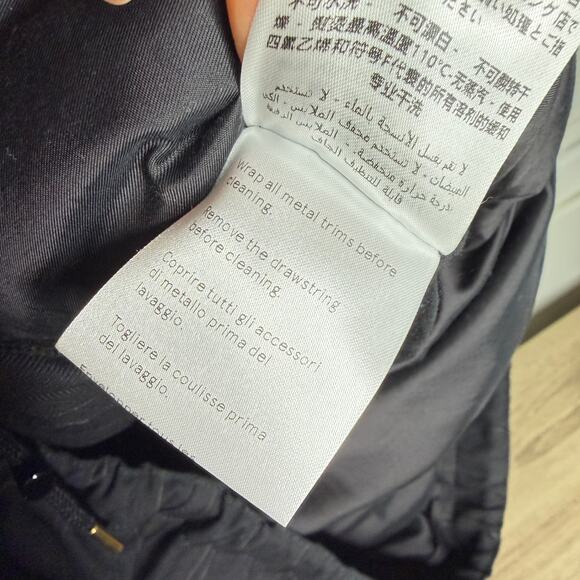 不可水洗 - 不可漂白 - 不可翻转干
燥 - 熨烫最高温度110°C-无蒸气 - 使用
四氯乙烯和符号F代表的所有溶剂的缓和
专业干洗
لا تقم بغسل الأنسجة بالماء - لا تستخدم
المبيضات - لا تستخدم مجفف الملابس - الكي
بدرجة حرارة منخفضة - الملابس الرقيقة
قابلة للتنظيف الجاف
Wrap all metal trims before
cleaning.
Remove the drawstring
before cleaning.
Coprire tutti gli accessori
di metallo prima del
lavaggio.
Togliere la coulisse prima
del lavaggio.